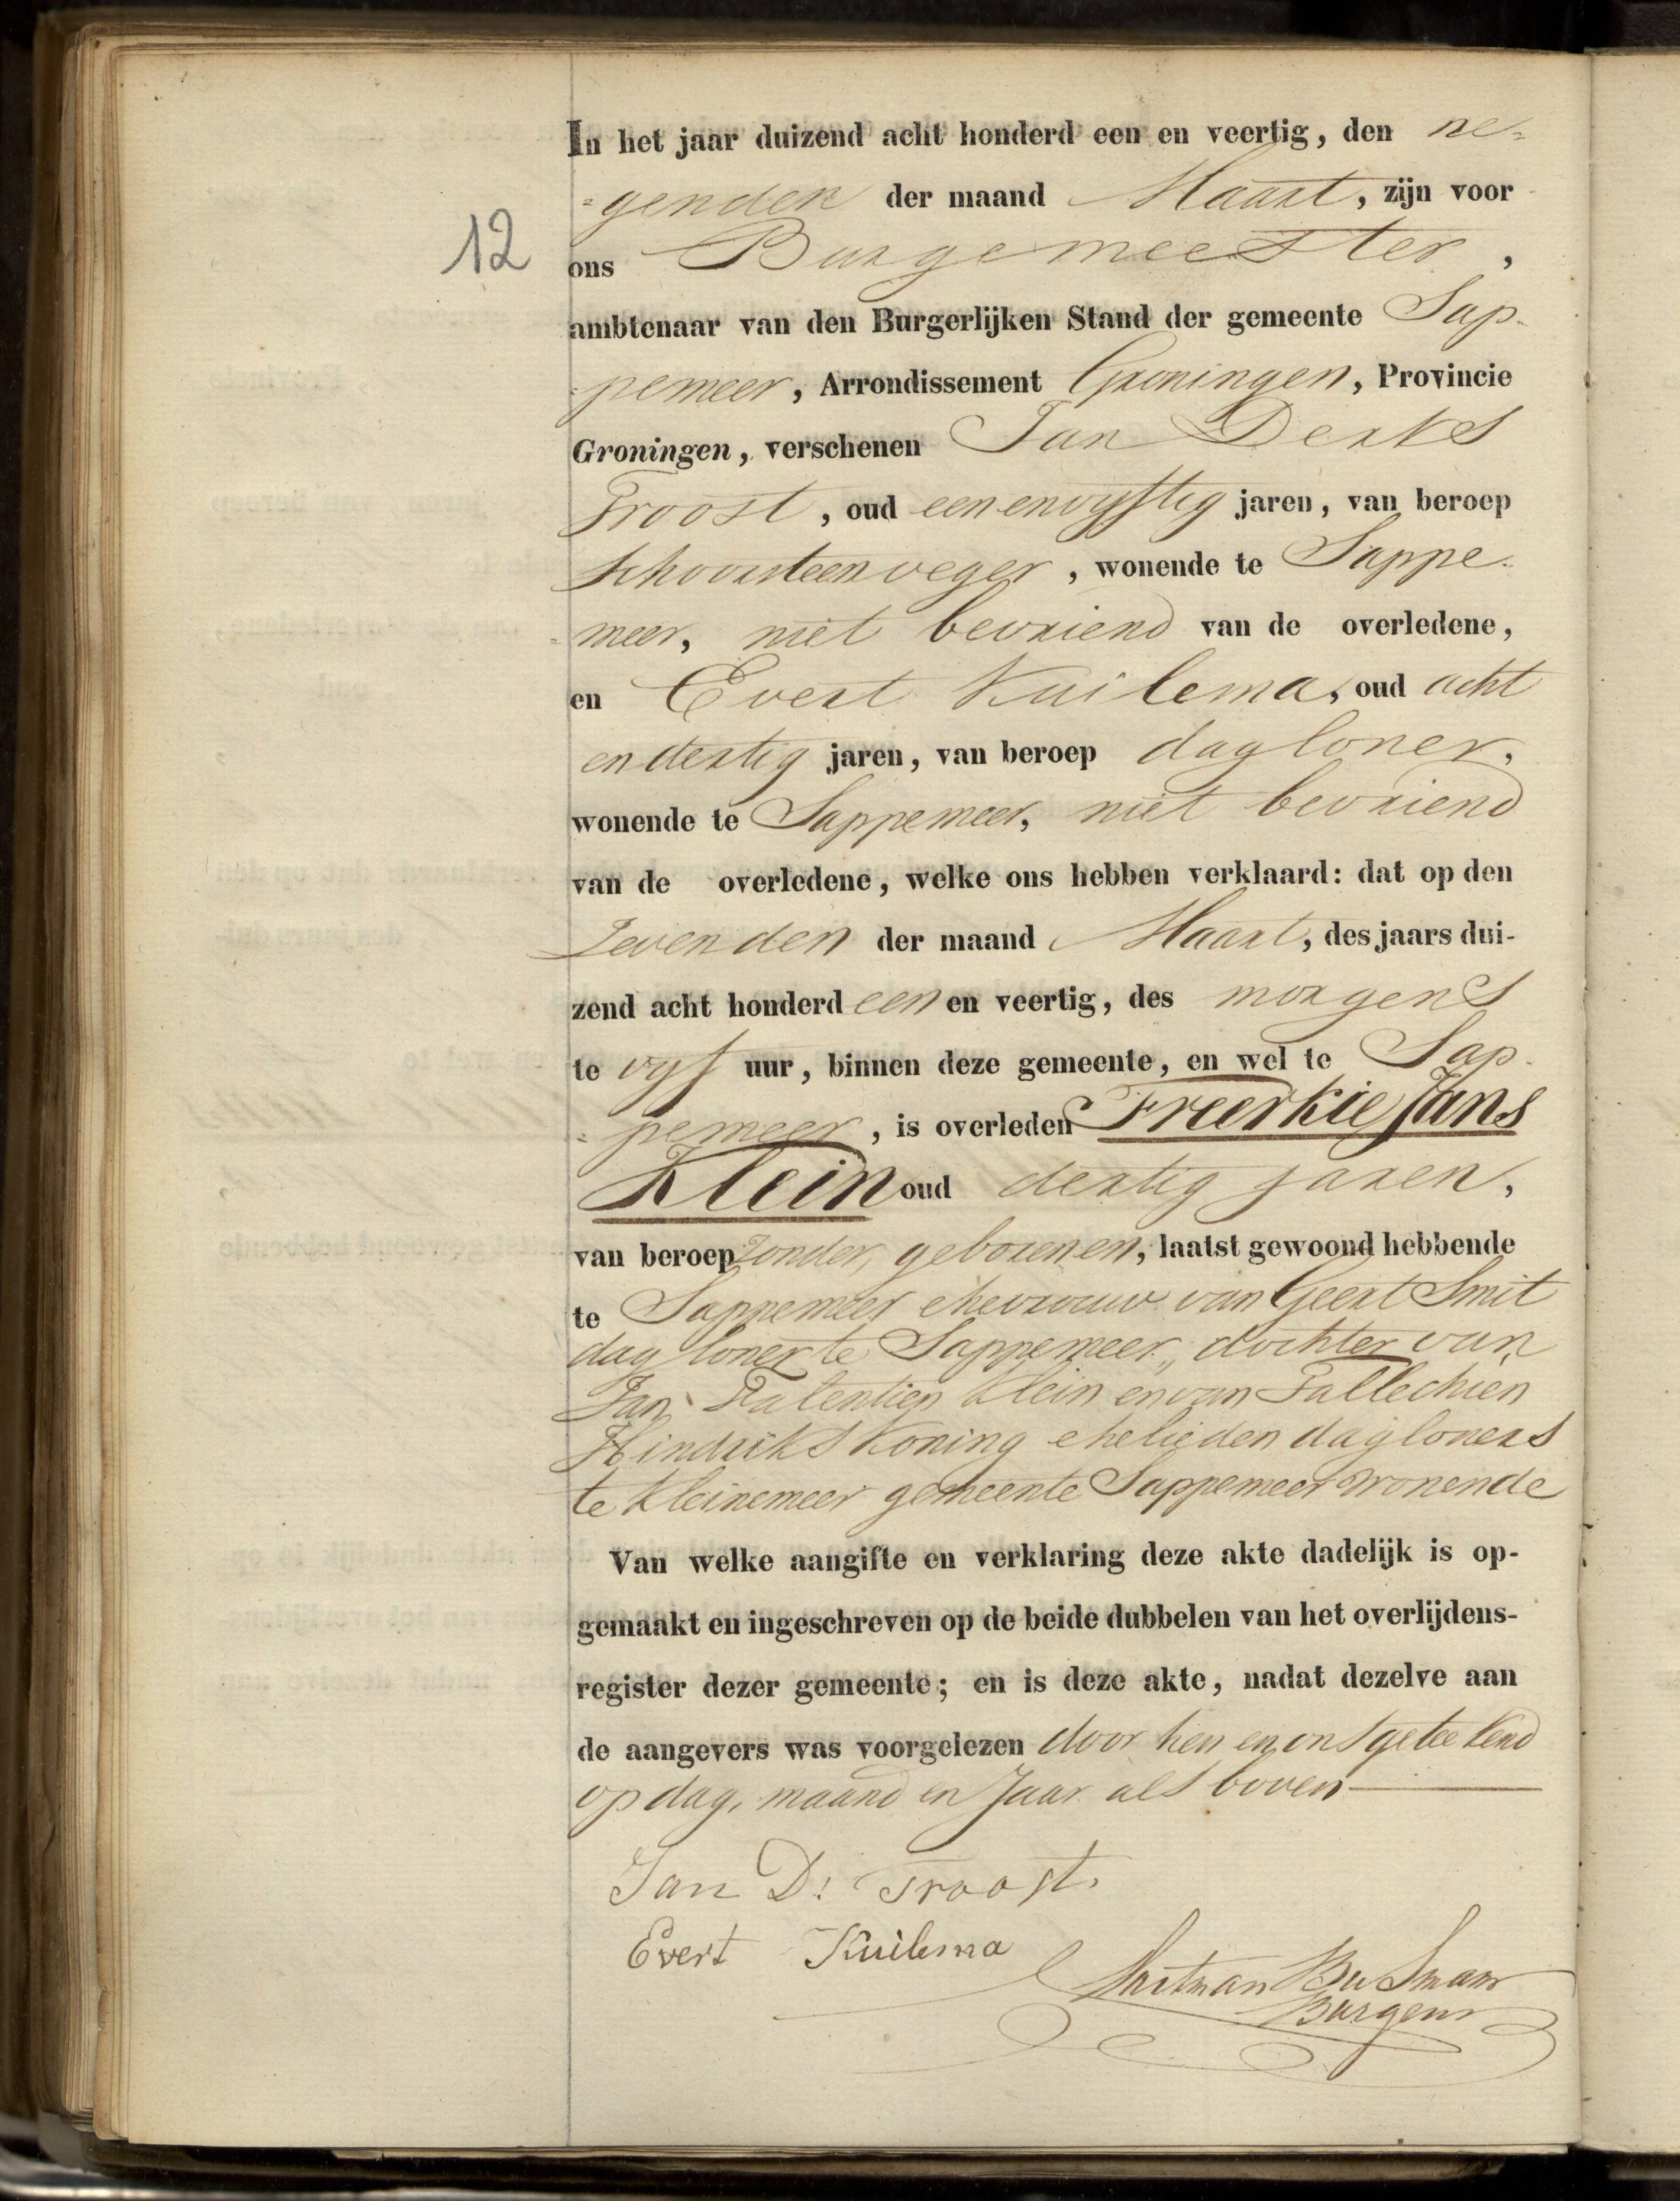 In het jaar duizend acht honderd een en veertig, den ne-
-genden der maand Maart, zijn voor
12
ons Burgemeester,
ambtenaar van den Burgerlijken Stand der gemeente Sap-
-pemeer, Arrondissement Groningen, Provincie
Groningen, verschenen Jan Derks
Troost, oud eenenvyftig jaren, van beroep
schoorsteenveger, wonende te Sappe-
-meer, niet bevriend van de overledene,
en Evert Kuilema, oud acht
en dertig jaren, van beroep dagloner,
wonende te Sappemeer, niet bevriend
van de overledene, welke ons hebben verklaard: dat op den
Zevenden der maand Maart, des jaars dui-
zend acht honderd een en veertig, des morgens
te vyf uur, binnen deze gemeente, en wel te Sap-
-pemeer, is overleden Freerkie Jans
Klein oud dertig jaren,
van beroep zonder, geboren en, laatst gewoond hebbende
te Sappemeer ehevrouw van Geert Smit
dagloner te Sappemeer, dochter van
Jan Falentien Klein en van Tallechien
Hindriks Koning ehelieden dagloners
te Kleinemeer gemeente Sappemeer wonende
Van welke aangifte en verklaring deze akte dadelijk is op-
gemaakt en ingeschreven op de beide dubbelen van het overlijdens-
register dezer gemeente; en is deze akte, nadat dezelve aan
de aangevers was voorgelezen door hen en ons geteekend
op dag, maand en Jaar als boven
Jan D: Troost.
Evert Kuilema
Burgem